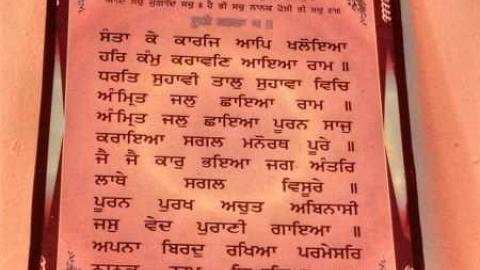 ਆਦਿ ਸਚੁ ਜੁਗਾਦਿ ਸਚੁ ॥ ਹੈ ਭੀ ਸਚੁ ਨਾਨਕ ਹੋਸੀ ਭੀ ਸਚੁ ॥੧॥
ਸੰਤਾ ਕੇ ਕਾਰਜਿ ਆਪਿ ਖਲੋਇਆ
ਹਰਿ ਕੰਮੁ ਕਰਾਵਣਿ ਆਇਆ ਰਾਮ ॥
ਧਰਤਿ ਸੁਹਾਵੀ ਤਾਲੁ ਸੁਹਾਵਾ ਵਿਚਿ
ਅੰਮ੍ਰਿਤ ਜਲੁ ਛਾਇਆ ਰਾਮ ॥
ਅੰਮ੍ਰਿਤ ਜਲੁ ਛਾਇਆ ਪੂਰਨ ਸਾਜੁ
ਕਰਾਇਆ ਸਗਲ ਮਨੋਰਥ ਪੂਰੇ ॥
ਜੈ ਜੈ ਕਾਰੁ ਭਇਆ ਜਗ ਅੰਤਰਿ
ਲਾਥੇ ਸਗਲ ਵਿਸੂਰੇ ॥
ਪੂਰਨ ਪੁਰਖ ਅਚੁਤ ਅਬਿਨਾਸੀ
ਜਸੁ ਵੇਦ ਪੁਰਾਣੀ ਗਾਇਆ ॥
ਅਪਨਾ ਬਿਰਦੁ ਰਖਿਆ ਪਰਮੇਸਰਿ